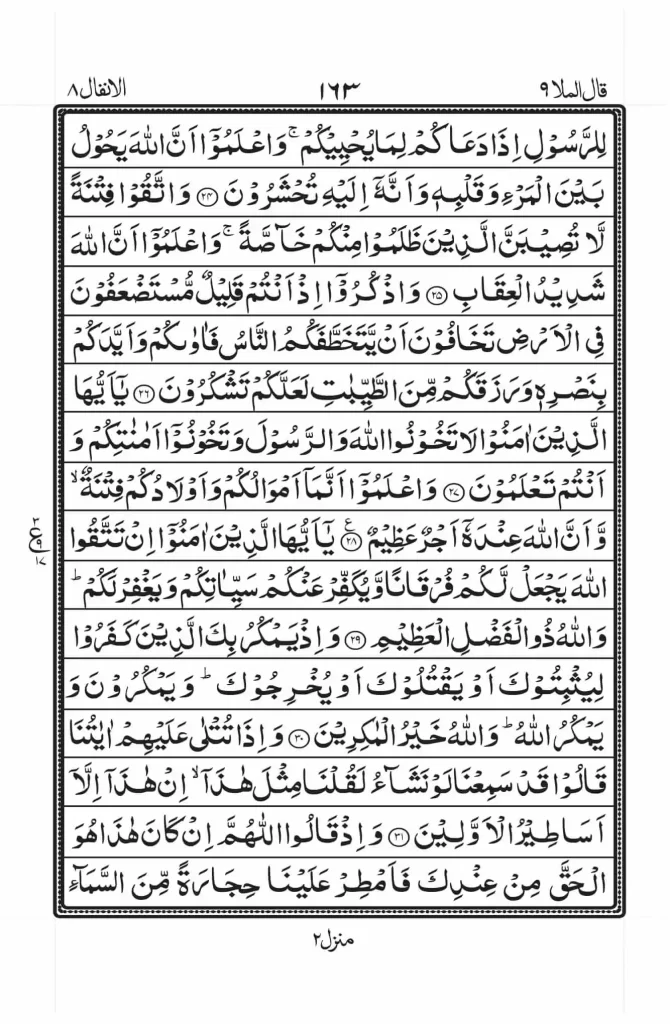 قال الملا ٩ ١٦٣ الانفال ٨
لِلرَّسُوۡلِ اِذَا دَعَاكُمۡ لِمَا يُحۡيِيۡكُمۡ ۚ وَاعۡلَمُوۡۤا اَنَّ اللّٰهَ يَحُوۡلُ
بَيۡنَ الۡمَرۡءِ وَقَلۡبِهٖ وَاَنَّهٗۤ اِلَيۡهِ تُحۡشَرُوۡنَ ﴿۲۴﴾ وَاتَّقُوۡا فِتۡنَةً
لَّا تُصِيۡبَنَّ الَّذِيۡنَ ظَلَمُوۡا مِنۡكُمۡ خَآصَّةً ۚ وَاعۡلَمُوۡۤا اَنَّ اللّٰهَ
شَدِيۡدُ الۡعِقَابِ ﴿۲۵﴾ وَاذۡكُرُوۡۤا اِذۡ اَنۡتُمۡ قَلِيۡلٌ مُّسۡتَضۡعَفُوۡنَ
فِى الۡاَرۡضِ تَخَافُوۡنَ اَنۡ يَّتَخَطَّفَكُمُ النَّاسُ فَاٰوٰٮكُمۡ وَاَيَّدَكُمۡ
بِنَصۡرِهٖ وَرَزَقَكُمۡ مِّنَ الطَّيِّبٰتِ لَعَلَّكُمۡ تَشۡكُرُوۡنَ ﴿۲۶﴾ يٰۤاَيُّهَا
الَّذِيۡنَ اٰمَنُوۡا لَا تَخُوۡنُوا اللّٰهَ وَالرَّسُوۡلَ وَتَخُوۡنُوۡۤا اَمٰنٰتِكُمۡ وَ
اَنۡتُمۡ تَعۡلَمُوۡنَ ﴿۲۷﴾ وَاعۡلَمُوۡۤا اَنَّمَاۤ اَمۡوَالُكُمۡ وَاَوۡلَادُكُمۡ فِتۡنَةٌ ۙ
وَّاَنَّ اللّٰهَ عِنۡدَهٗۤ اَجۡرٌ عَظِيۡمٌ ﴿۲۸﴾ ع يٰۤاَيُّهَا الَّذِيۡنَ اٰمَنُوۡۤا اِنۡ تَتَّقُوا
٣ ع ٩ ١٧
اللّٰهَ يَجۡعَلْ لَّكُمۡ فُرۡقَانًا وَّيُكَفِّرۡ عَنۡكُمۡ سَيِّاٰتِكُمۡ وَيَغۡفِرۡ لَكُمۡ ؕ
وَاللّٰهُ ذُو الۡفَضۡلِ الۡعَظِيۡمِ ﴿۲۹﴾ وَاِذۡ يَمۡكُرُ بِكَ الَّذِيۡنَ كَفَرُوۡا
لِيُثۡبِتُوۡكَ اَوۡ يَقۡتُلُوۡكَ اَوۡ يُخۡرِجُوۡكَ ؕ وَيَمۡكُرُوۡنَ وَ
يَمۡكُرُ اللّٰهُ ؕ وَاللّٰهُ خَيۡرُ الۡمٰكِرِيۡنَ ﴿۳۰﴾ وَاِذَا تُتۡلٰى عَلَيۡهِمۡ اٰيٰتُنَا
قَالُوۡا قَدۡ سَمِعۡنَا لَوۡ نَشَآءُ لَقُلۡنَا مِثۡلَ هٰذَاۤ ۙ اِنۡ هٰذَاۤ اِلَّاۤ
اَسَاطِيۡرُ الۡاَوَّلِيۡنَ ﴿۳۱﴾ وَاِذۡ قَالُوا اللّٰهُمَّ اِنۡ كَانَ هٰذَا هُوَ
الۡحَقَّ مِنۡ عِنۡدِكَ فَاَمۡطِرۡ عَلَيۡنَا حِجَارَةً مِّنَ السَّمَآءِ
منزل ٢